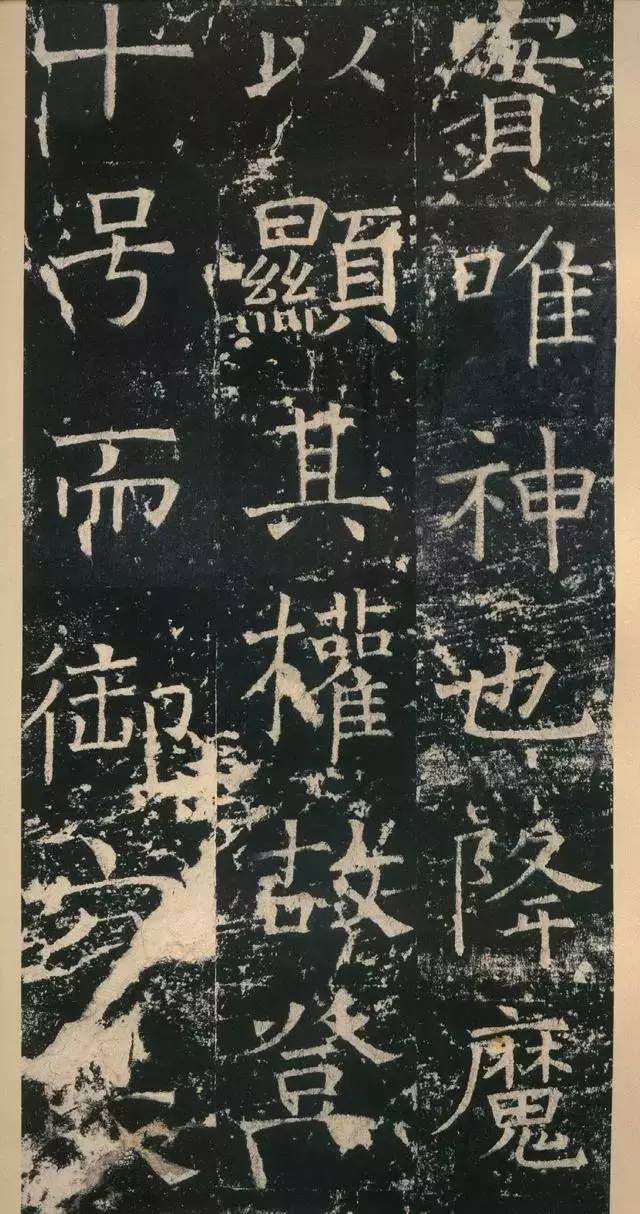 賔唯神也降魔
以顯其權故登
十号而御